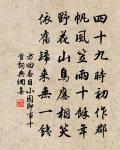 四十九時初作郡
帆風笠雨十餘年
野花山鳥應相笑
依舊歸來無一錢
方回春日小園即事十
首詞典網集